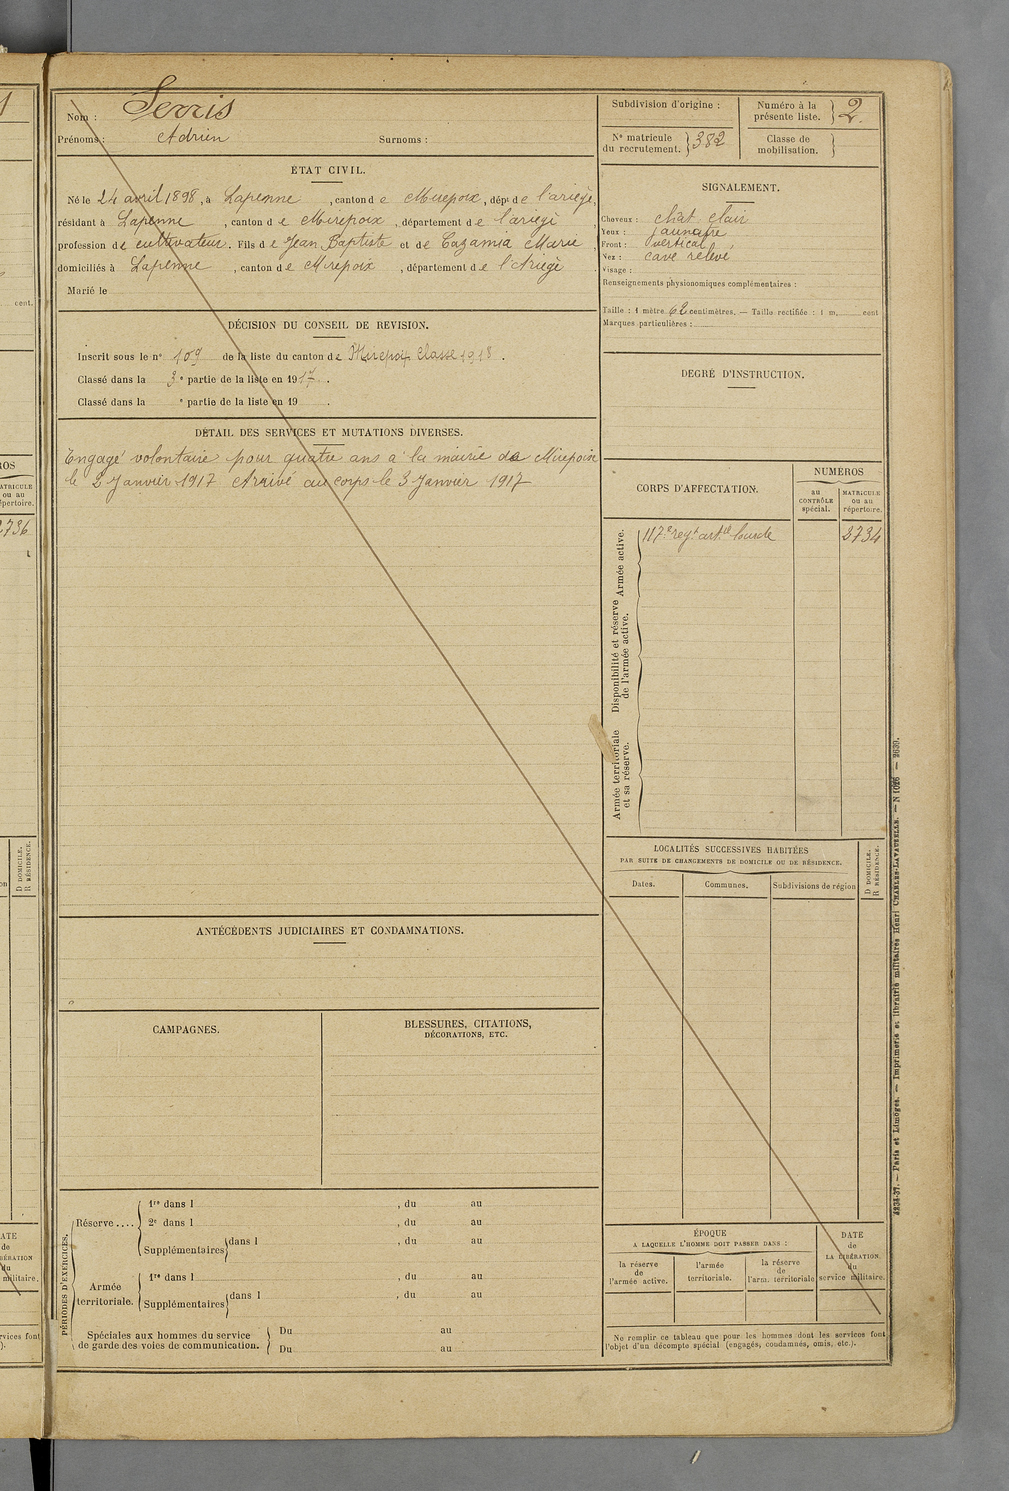 Nom : Serris
Prénoms : Adrien Surnoms :
Subdivision d'origine :
Numéro à la présente liste. } 2.
Nº matricule du recrutement. } 382
Classe de mobilisation. }
ÉTAT CIVIL.
Né le 24 avril 1898, à Lapenne, canton de Mirepoix, dépt de l'ariège,
résidant à Lapenne, canton de Mirepoix, département de l'ariège
profession de cultivateur. Fils de Jean Baptiste et de Cazamia Marie
domiciliés à Lapenne, canton de Mirepoix, département de l'Ariège.
Marié le
DÉCISION DU CONSEIL DE REVISION.
Inscrit sous le nº 109 de la liste du canton de Mirepoix Classe 1918.
Classé dans la 3e partie de la liste en 1917.
Classé dans la e partie de la liste en 19 .
DÉTAIL DES SERVICES ET MUTATIONS DIVERSES.
Engagé volontaire pour quatre ans à la mairie de Mirepoix
le 2 Janvier 1917 Arrivé au corps le 3 Janvier 1917
ANTÉCÉDENTS JUDICIAIRES ET CONDAMNATIONS.
CAMPAGNES.
BLESSURES, CITATIONS,
DÉCORATIONS, ETC.
PÉRIODES D'EXERCICES.
Réserve....
1re dans l , du au
2e dans l , du au
Supplémentaires } dans l , du au
Armée territoriale.
1re dans l , du au
Supplémentaires } dans l , du au
Spéciales aux hommes du service
de garde des voies de communication.
Du au
Du au
SIGNALEMENT.
Cheveux : chat clair
Yeux : jaunatre
Front : vertical
Nez : cave relevé
Visage :
Renseignements physionomiques complémentaires :
Taille : 1 mètre 62 centimètres. — Taille rectifiée : 1 m. cent
Marques particulières :
DEGRÉ D'INSTRUCTION.
CORPS D'AFFECTATION.
NUMÉROS
au CONTRÔLE spécial.
MATRICULE ou au répertoire.
Armée active.
117e regt artie lourde 2734
Disponibilité et réserve de l'armée active.
Armée territoriale et sa réserve.
LOCALITÉS SUCCESSIVES HABITÉES
PAR SUITE DE CHANGEMENTS DE DOMICILE OU DE RÉSIDENCE.
D DOMICILE.
R RÉSIDENCE.
Dates. Communes. Subdivisions de région
ÉPOQUE
A LAQUELLE L'HOMME DOIT PASSER DANS :
la réserve de l'armée active.
l'armée territoriale.
la réserve de l'arm. territoriale
DATE de LA LIBÉRATION du service militaire.
Ne remplir ce tableau que pour les hommes dont les services font
l'objet d'un décompte spécial (engagés, condamnés, omis, etc.).
4234-37. — Paris et Limoges. — Imprimerie et librairie militaires Henri CHARLES-LAVAUZELLE. — N 1026 — 2639.
cent.
MATRICULE
ou au
répertoire.
2736
D DOMICILE.
R RÉSIDENCE.
DATE
de
LIBÉRATION
du
militaire.
services font